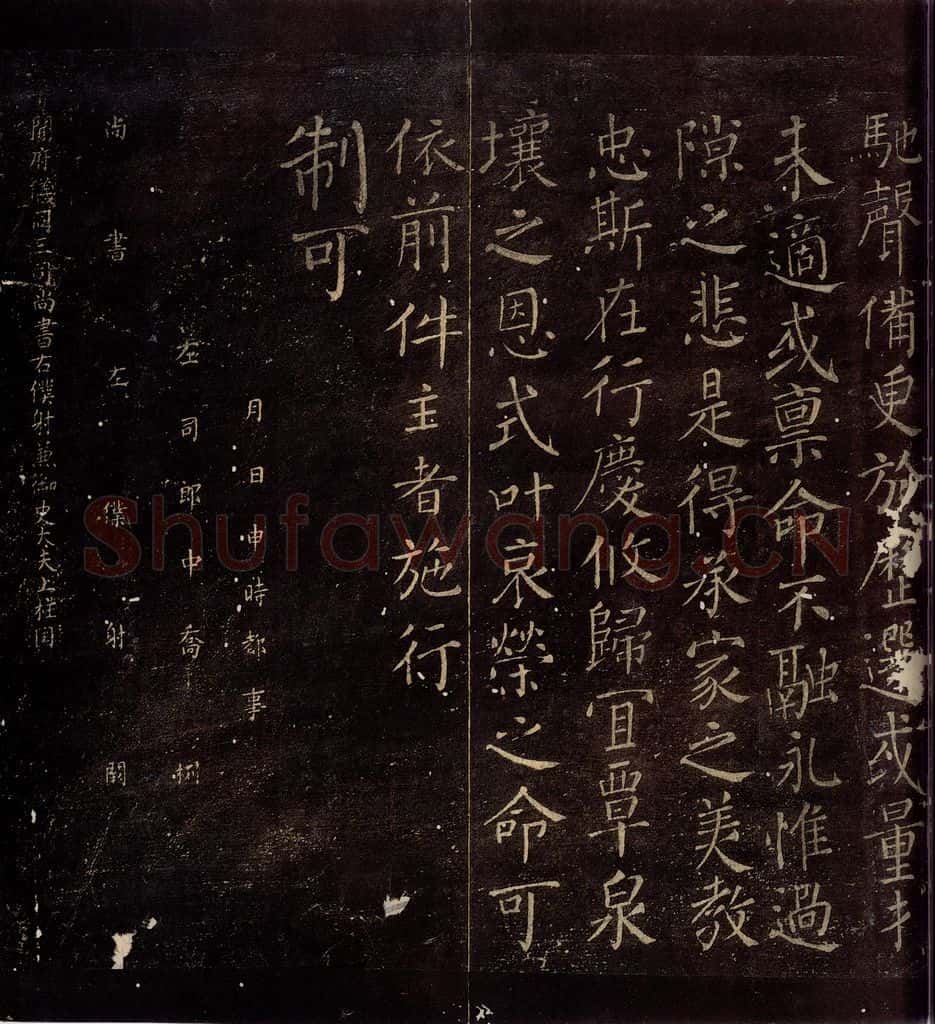 馳聲備更於歷選或量才
未適或禀命不融永惟過
隙之悲是得承家之美教
忠斯在行慶攸歸宜覃泉
壤之恩式叶哀榮之命可
依前件主者施行
制可
月日申時都事
左司郎中喬 栁
尚書左僕射闕
開府儀同三司尚書右僕射兼御史大夫上柱国
Shufawang.CN